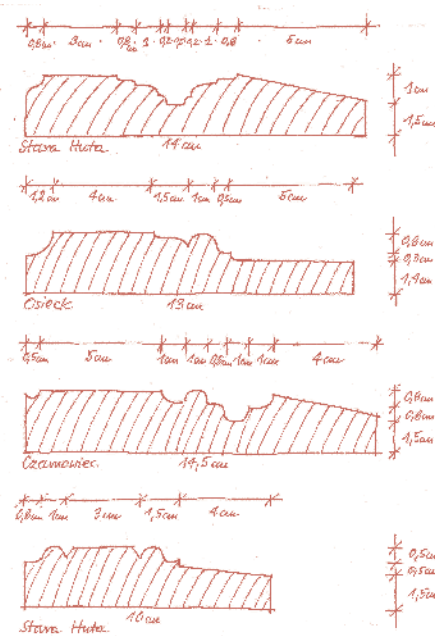 0,8cm 3cm 0,8cm 1 0,2 0,2 1 0,8 5cm
1cm
1,5cm
Stara Huta 14cm
1,2cm 4cm 1,5cm 1cm 0,5cm 5cm
0,8cm
0,3cm
1,4cm
Osieck 13cm
0,5cm 5cm 1cm 1cm 0,8cm 1cm 1cm 4cm
0,8cm
0,8cm
1,5cm
Czarnowiec 14,5cm
0,8cm 1cm 3cm 1,5cm 4cm
0,5cm
0,5cm
1,5cm
Stara Huta 10cm